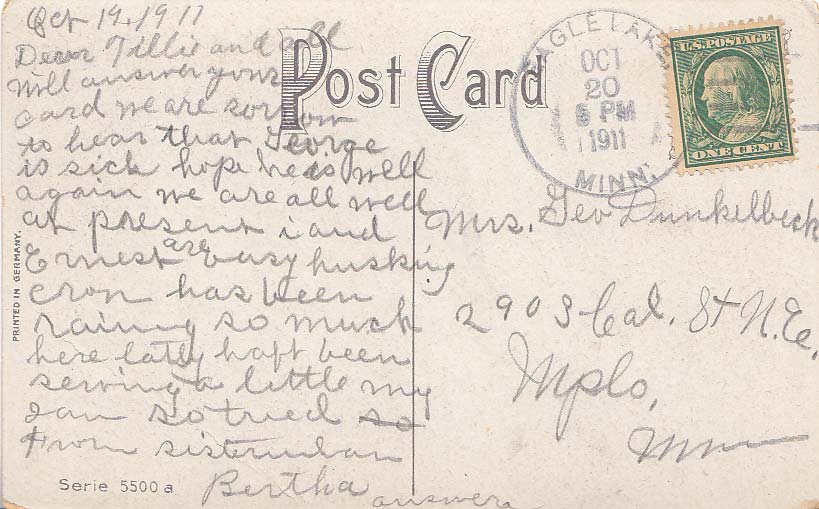 Oct 19, 1911
Dear Tillie and all
Will answer your
card we are
to hear that George
is sick hope he is well
again we are all well
at present i and
Ernest are busy husking
cron has been
raining so much
here latly haft been
sewing a little my
so tired so
From sisterinlaw
Bertha
answer
Post Card
EAGLE LAKE
OCT
20
5 PM
1911
MINN.
U.S. POSTAGE
ONE CENT
Mrs. Geo Dunkelbeck
2903 Cal. St N.E.
Mpls,
Minn
PRINTED IN GERMANY.
Serie 5500 a